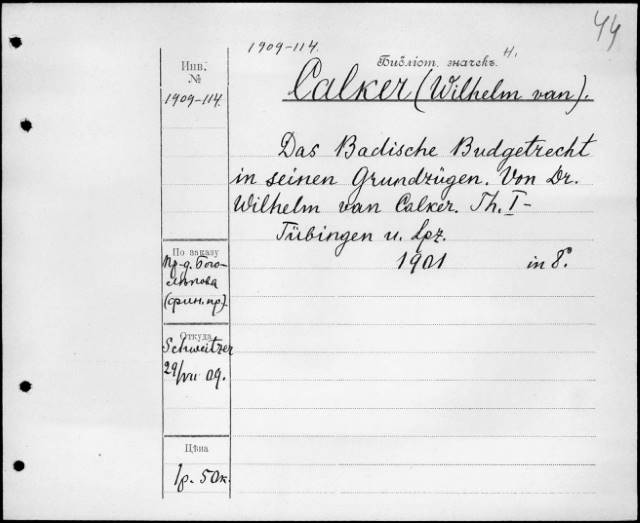 44
1909-114.
Библіот. значекъ
Инв.
№
1909-114.
Calker (Wilhelm van).
Das Badische Budgetrecht
in seinen Grundzügen. Von Dr.
Wilhelm van Calker. Th. I-
Tübingen u. Lpz.
1901 in 8°.
По заказу
пр-д. Бого-
лѣпова
(фин. пр).
Откуда
Schweitzer
29/VII 09.
Цѣна
1р. 50к.